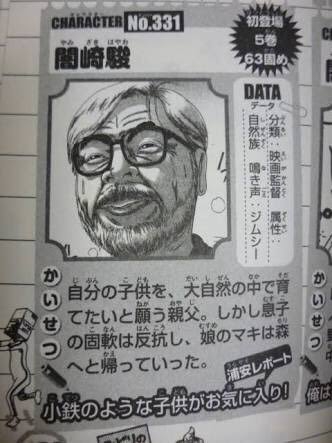 CHARACTER No.331
やみ ざき はやお
闇崎駿
初登場
5巻
63固め
DATA
データ
分類：映画監督 属性：
自然族 鳴き声：ジムシー
かいせつ
自分の子供を、大自然の中で育
てたいと願う親父。しかし息子
の固軟は反抗し、娘のマキは森
へと帰っていった。
浦安レポート
小鉄のような子供がお気に入り!